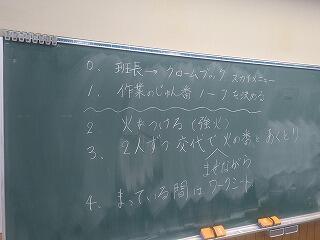 0. 班長→クロームブック スカイメニュー
1. 作業のじゅん番 ノートを決める
2. 火をつける(強火)
3. 2人ずつ交代で火の番とあくとり
まぜながら
4. まっている間はワークシート